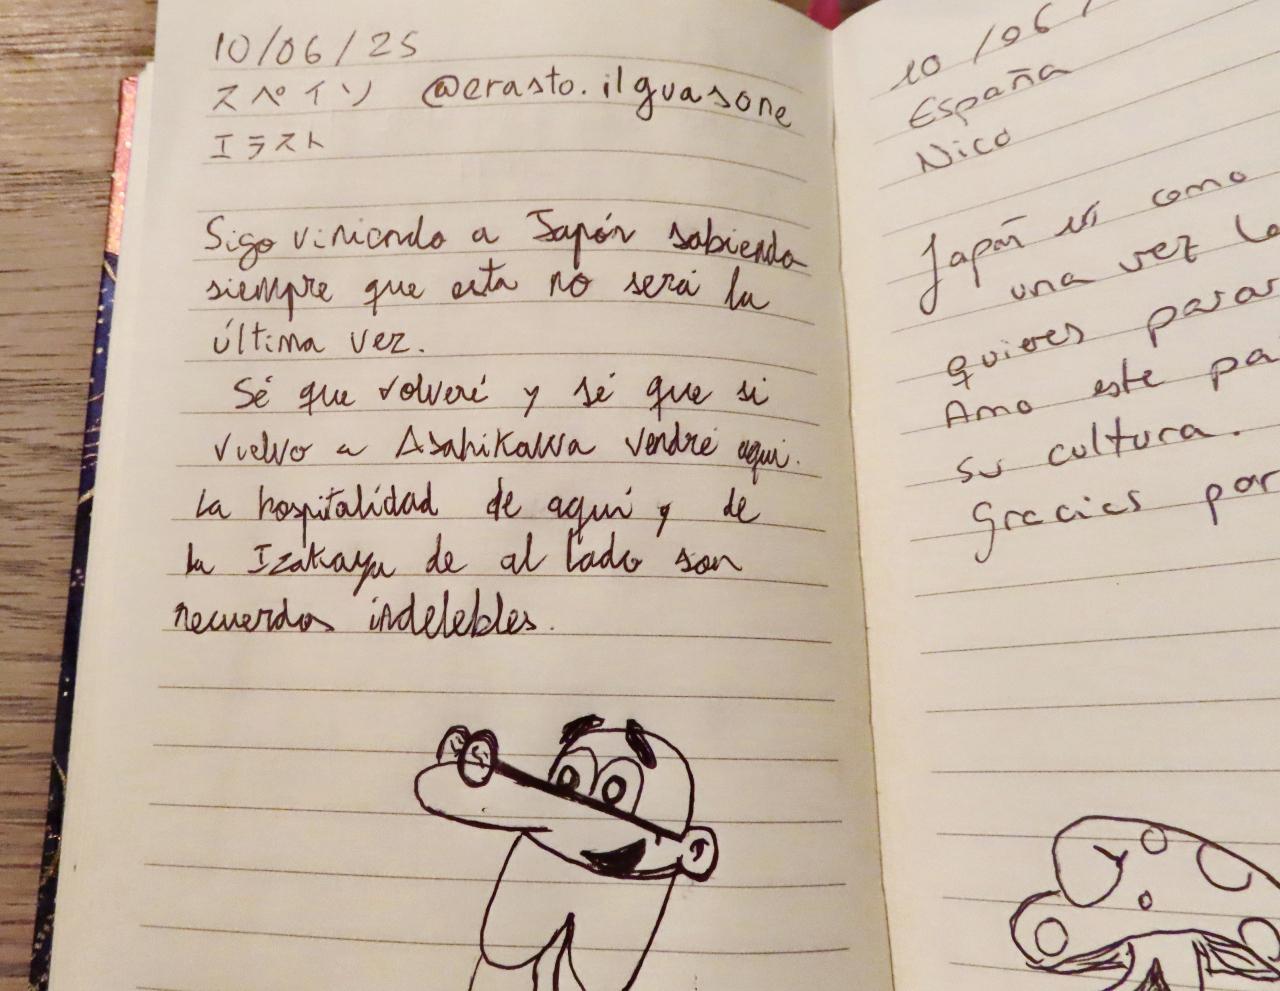 10/06/25
スペイン @erasto.ilguasone
エラスト
Sigo viniendo a Japón sabiendo
siempre que esta no será la
última vez.
Sé que volveré y sé que si
vuelvo a Asahikawa vendré aquí.
La hospitalidad de aquí y de
la Izakaya de al lado son
recuerdos indelebles.
10/06/
España
Nico
Japón es como
una vez
quieres parar
Amo este
su cultura.
Gracias por